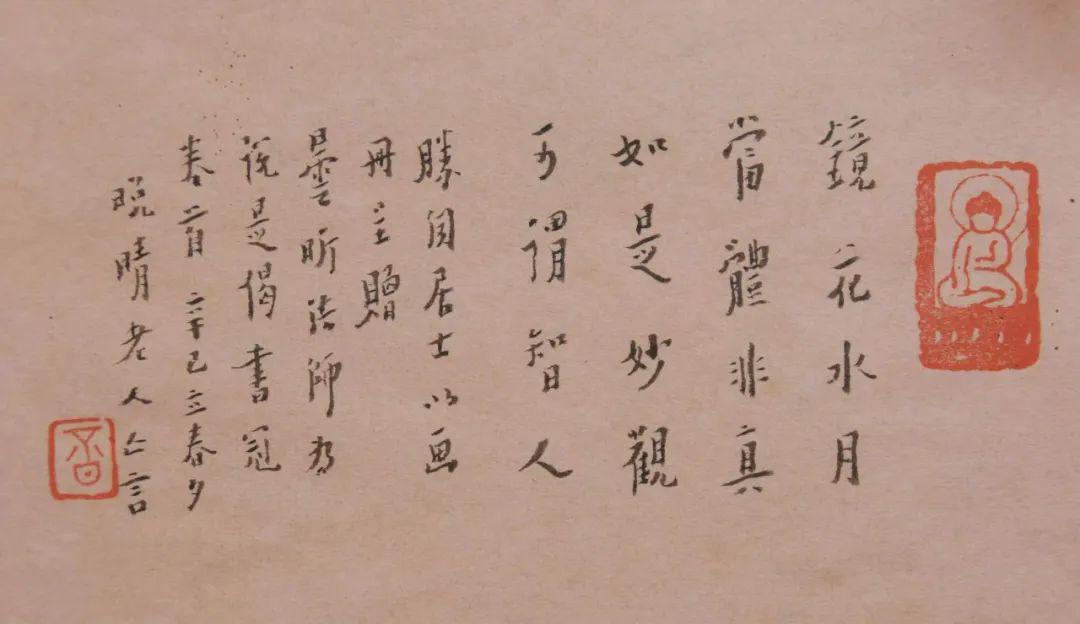 鏡花水月
當體非真
如是妙觀
可謂智人
勝閒居士以画
冊呈贈
曇昕法師為
說是偈書冠
卷首 辛巳立春夕
晚晴老人亡言